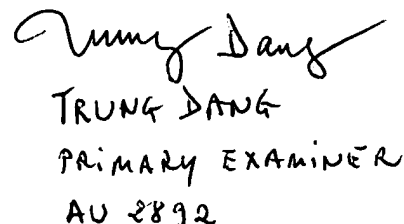 Trung Dang
TRUNG DANG
PRIMARY EXAMINER
AU 2892